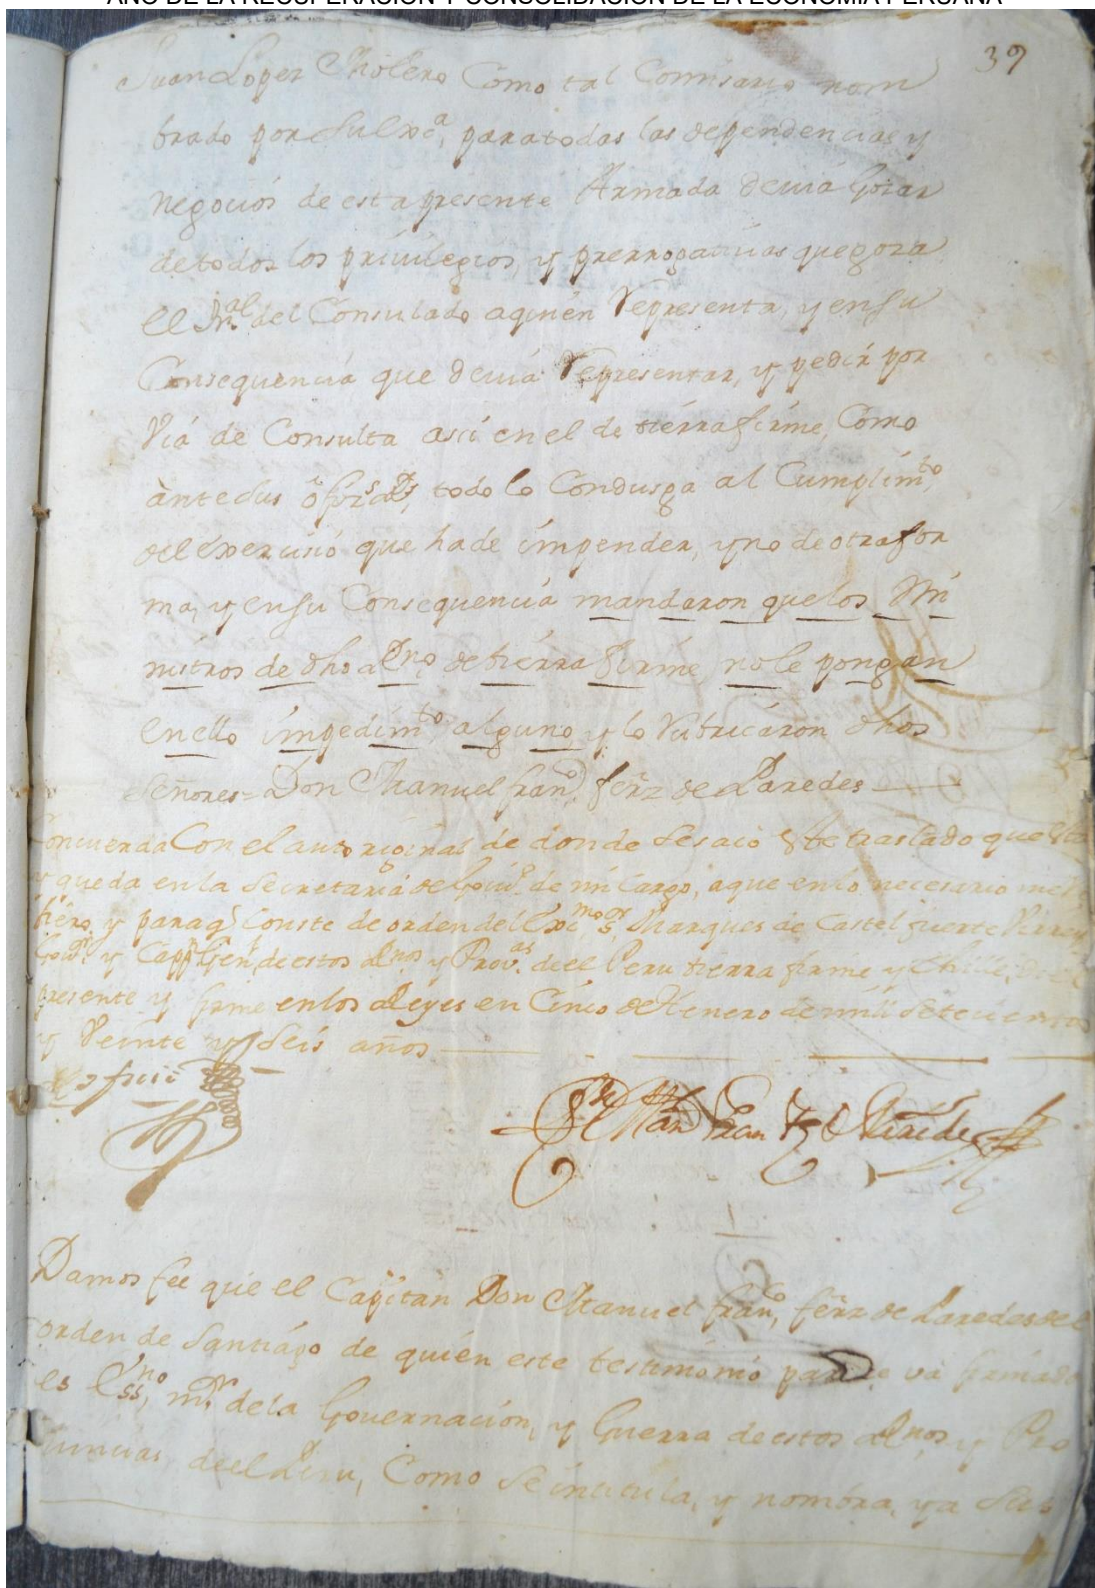 AÑO DE LA RECUPERACIÓN Y CONSOLIDACIÓN DE LA ECONOMÍA PERUANA
39
Juan Lopez Molero Como tal Comisario nom
brado por su Exca, para todas las dependencias y
negocios de esta presente Armada devia Gozar
de todos los privilegios, y prerrogativas que goza
el Trnal del Consulado a quien representa, y en su
Consequencia que devia representar, y pedir por
via de Consulta assi en el de tierra firme, Como
ante sus todo lo Condusga al Cumplimto
del exercisio que ha de impender, y no de otra for
ma, y en su Consequencia mandaron que los Mi
nistros de dho Rno de tierra firme no le pongan
en ello impedimto alguno y lo rubricaron dhos
Señores = Don Manuel Frano ferz de Paredes
Concuerda Con el auto original de donde se saco este traslado que
queda en la Secretaria de Govno de mi cargo, a que en lo necesario me
fiero, y para q Conste de orden del Excmo Sor Marques de Castel fuerte Virrey
Govor y Cappn Genl de estos Rnos y Provas de el Peru tierra firme y Chille,
presente y firme en los Reyes en Cinco de Henero de mill setecientos
y Veinte y seis años
Dn Man Fran Fz de Paredes
Damos fee que el Capitan Don Manuel frano, ferz de Paredes del
orden de Santiago de quien este testimonio parece va firmado
es Essno, mor de la Governacion, y Guerra de estos Rnos y Pro
vincias de el Peru, Como se intitula, y nombra, y a sus